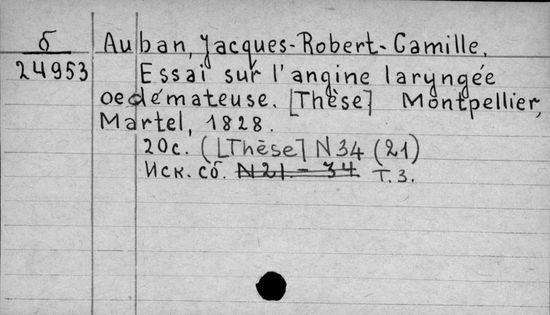 б
24953
Auban, Jacques-Robert-Camille.
Essai sur l'angine laryngée
oedémateuse. [Thèse] Montpellier,
Martel, 1828.
20c. ([Thèse] N 34 (21)
Иск. сб. N 21 - 34 Т. 3.